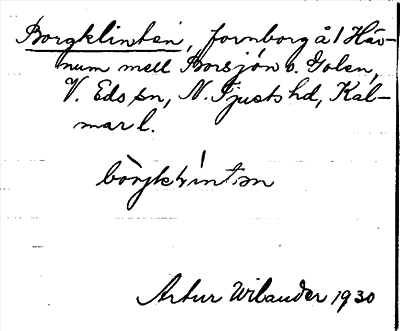 Borgklinten, fornborg å 1 Häv-
num mell Borsjön o. Golen,
V. Eds sn, N. Tjusts hd, Kal-
mar l.
bòrjklintən
Artur Wilander 1930